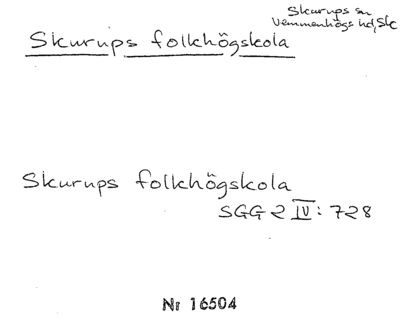 Skurups sn
Vemmenhögs hd, Sk
Skurups folkhögskola
Skurups folkhögskola
SGG 2 IV: 728
Nr 16504